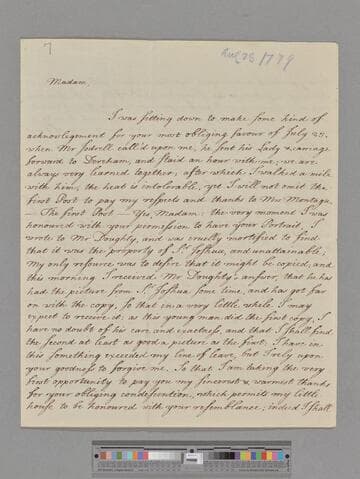 7
Aug 23 1779
Madam,
I was sitting down to make some kind of
acknowlegement for your most obliging favour of July 28.
when Mr Jodrell call'd upon me, he sent his Lady & carriage
forward to Dereham, and staid an hour with me; we are
always very learned together; after which I walked a mile
with him, the heat is intolerable, yet I will not omit the
first Post to pay my respects and thanks to Mrs Montagu.
— The first Post — Yes, Madam: the very moment I was
honoured with your permission to have your Portrait, I
wrote to Mr Doughty, and was cruelly mortified to find
that it was the property of Sr. Joshua, and unattainable.
My only resource was to desire that it might be copied, and
this morning I received Mr. Doughty's answer, that he has
had the picture from Sr. Joshua some time, and has got far
on with the copy, so that in a very little while I may
expect to receive it; as this young man did the first copy, I
have no doubt of his care and exactness, and that I shall find
the second at least as good a picture as the first. I have in
this something exceeded my line of leave, but I rely upon
your goodness to forgive me. So that I am taking the very
first opportunity to pay you my sincerest & warmest thanks
for your obliging condescention, which permits my little
house to be honoured with your resemblance; indeed I shall